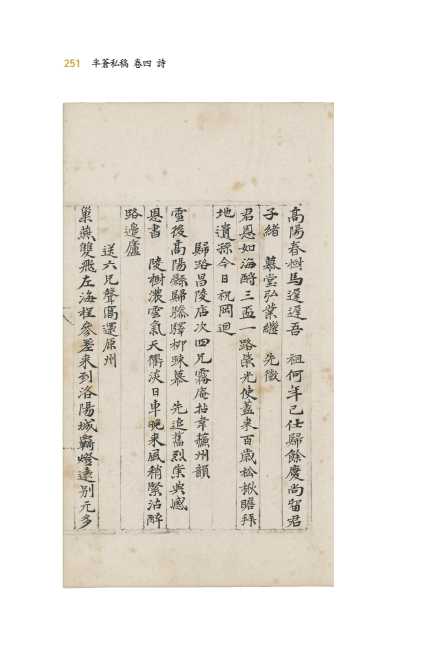 251 半蒼私稿 卷四 詩
高陽春樹馬遲遲吾 祖何年已仕歸餘慶尚留君
子緒 慕堂弘業纘 先徽
君恩如海酹三盃一路榮光使蓋来百歲松楸瞻拜
地遺孫今日祝岡迴
歸路昌陵店次四兄霧庵拈韋蘓州韻
雪後高陽縣歸驂驛柳踈慕 先追舊烈宗典感
恩書 陵樹濃雲氣天衢淡日車晩来風稍緊沽酔
路邊廬
送六兄聲窩還原州
巢燕雙飛左海程參差来到洛陽城窮燈遠别元多